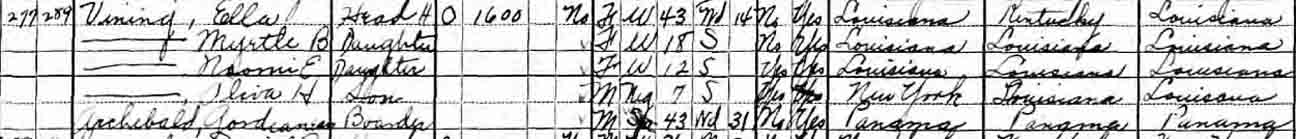 277 289 Vining, Ella Head H O 1600 No F W 43 Wd 14 No Yes Louisiana Kentucky Louisiana
———, Myrtle B Daughter F W 18 S No Yes Louisiana Louisiana Louisiana
———, Naomi E Daughter F W 12 S Yes Yes Louisiana Louisiana Louisiana
———, H Son M Neg 7 S Yes Yes New York Louisiana Louisana
Archibald, Boarder M 43 31 No Yes Panama Panama Panama